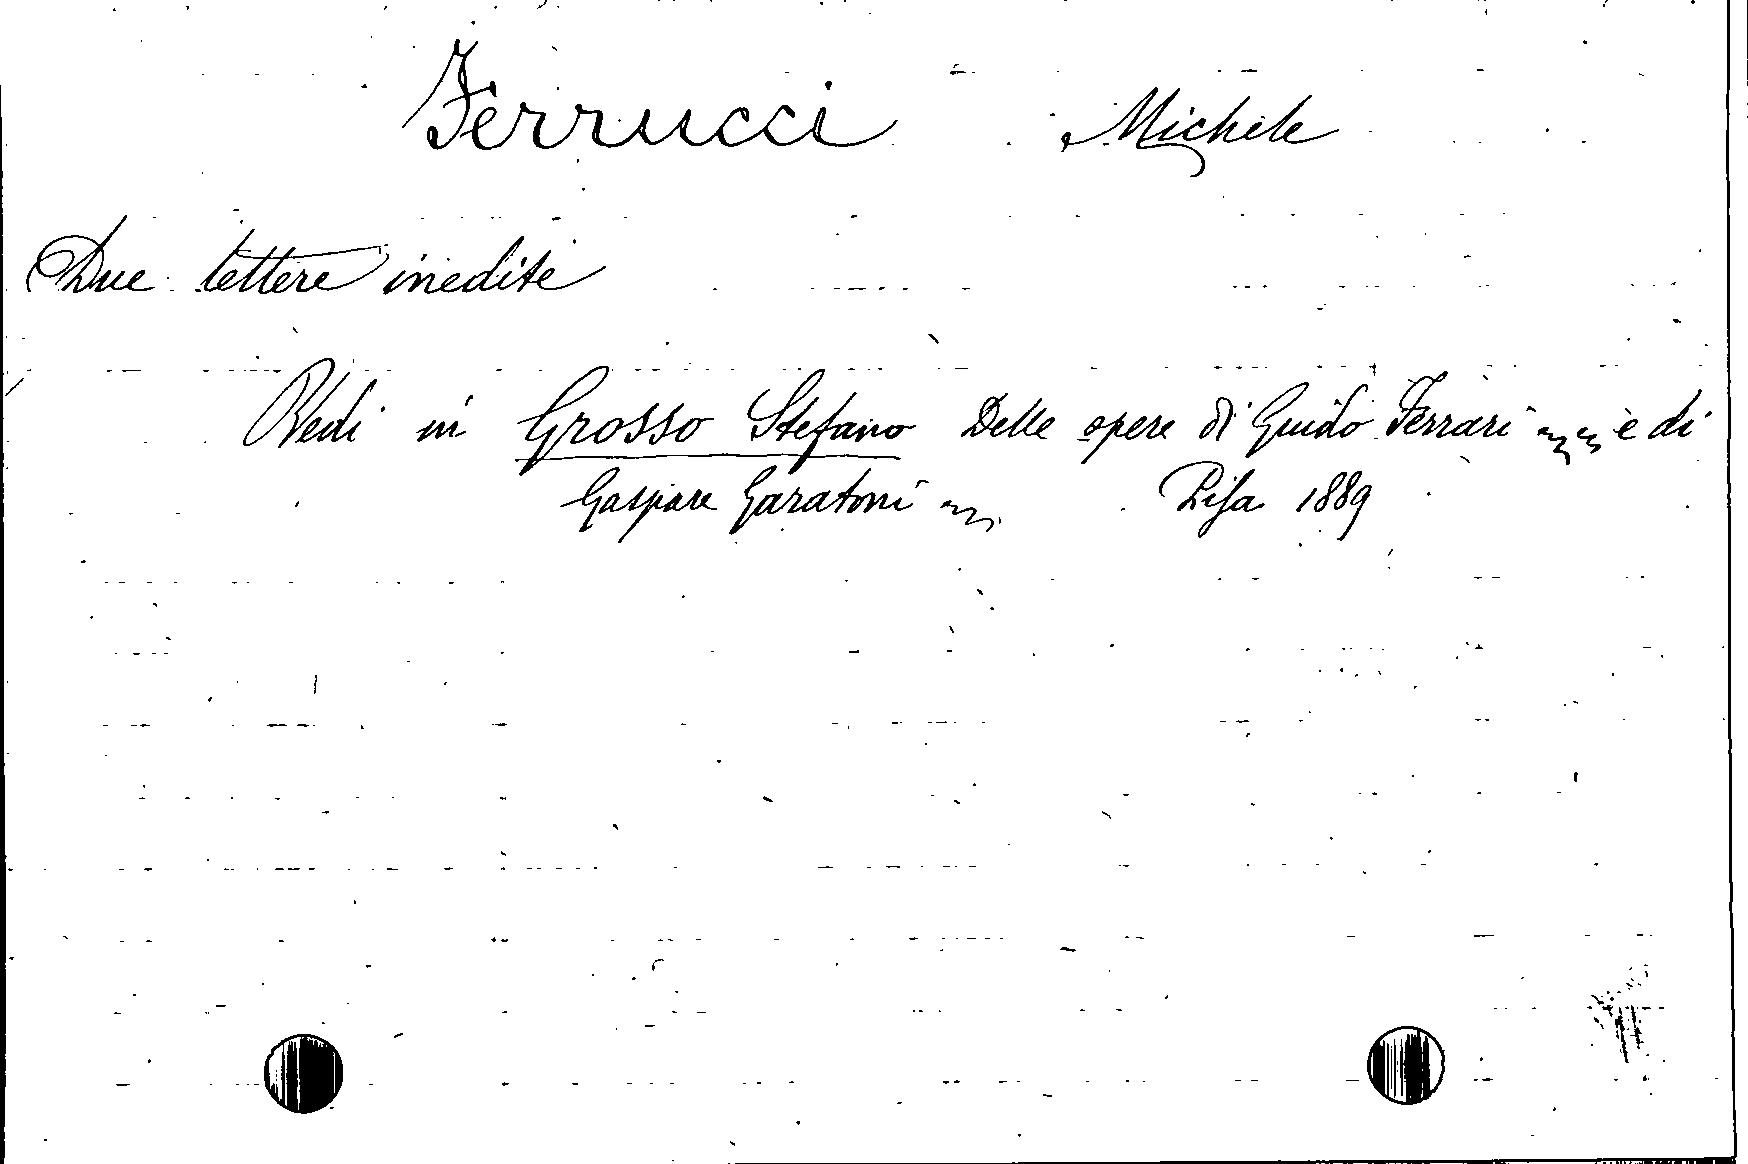 Ferrucci Michele
Due lettere inedite
Vedi in Grosso Stefano Delle opere di Guido Ferrari e di
Gaspare Garatoni Pisa 1889